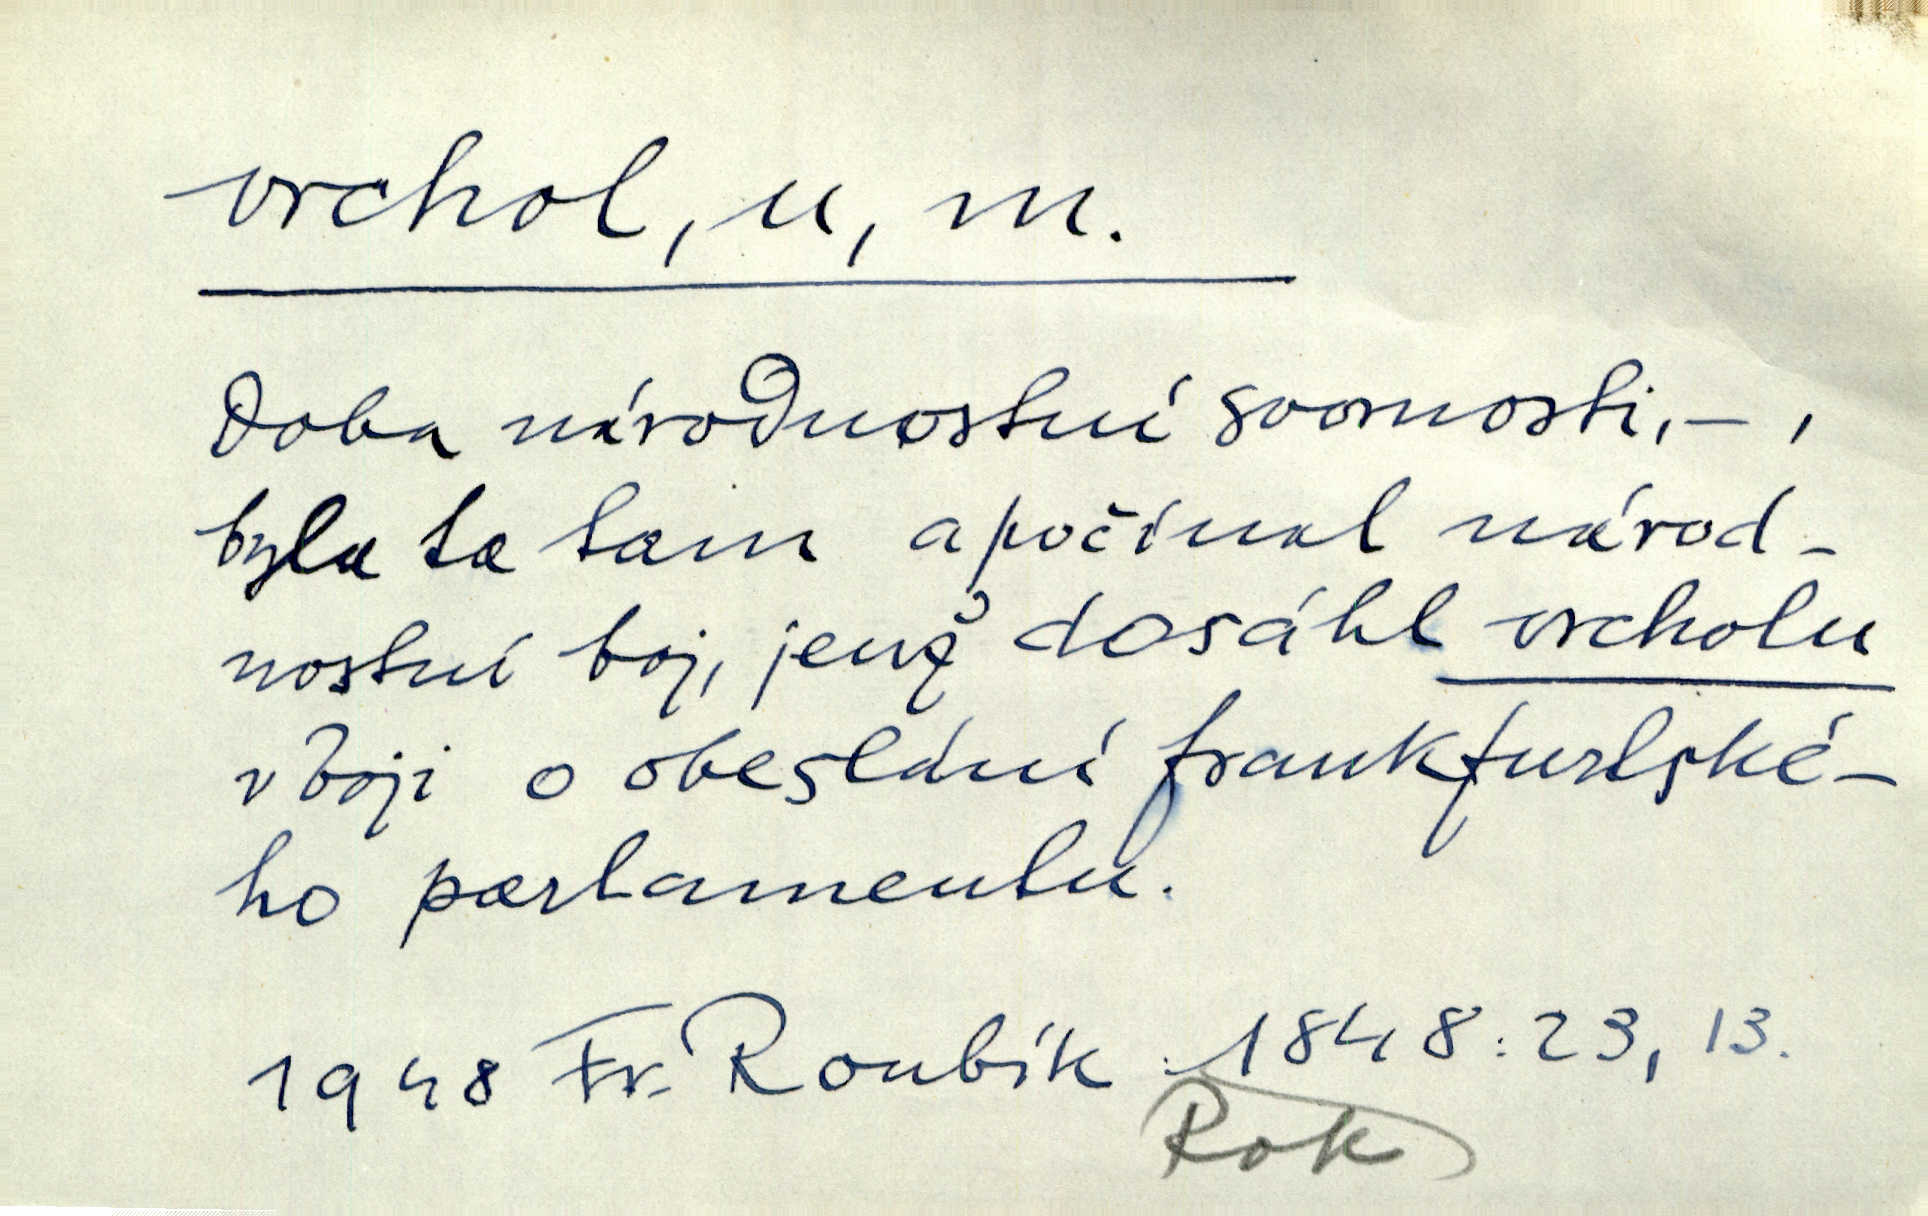 vrchol, u, m.
Doba národnostní svornosti, – ,
byla ta tam a počínal národ-
nostní boj, jenž dosáhl vrcholu
v boji o obeslání frankfurtské-
ho parlamentu.
1948 Fr. Roubík : 1848 : 23, 13.
Rok